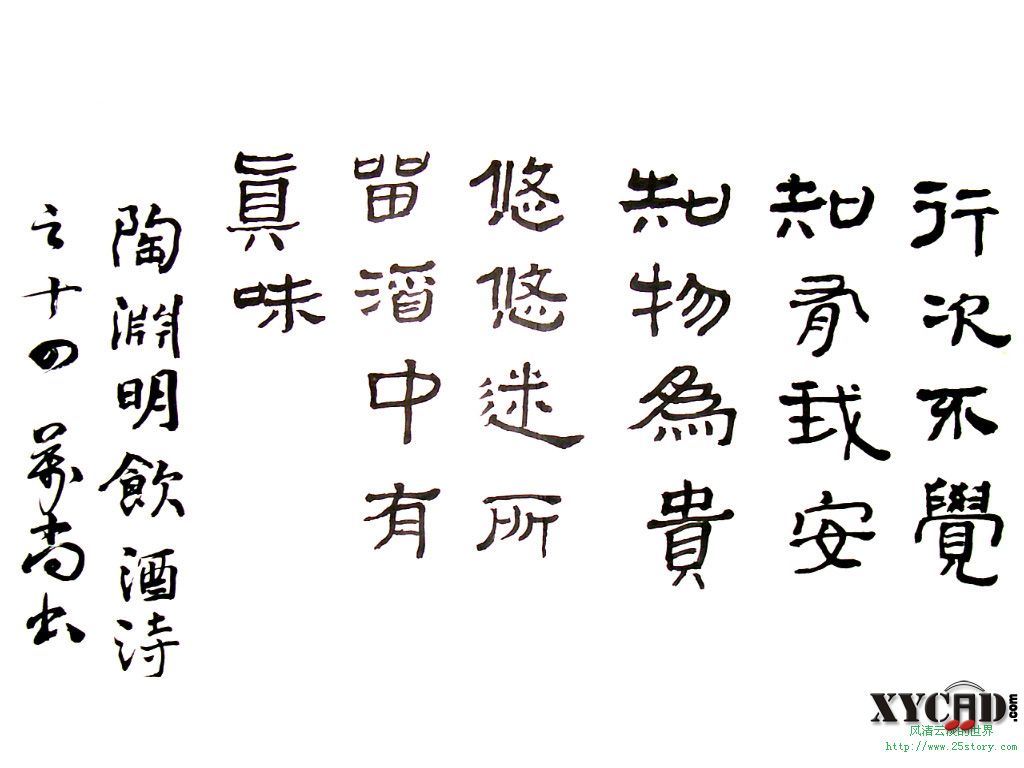 行次不覺
知有我安
知物為貴
悠悠迷所
留酒中有
眞味
陶淵明飲酒詩
之十四 萬尚书
XYCAD.com
风清云淡的世界
http://www.25story.com